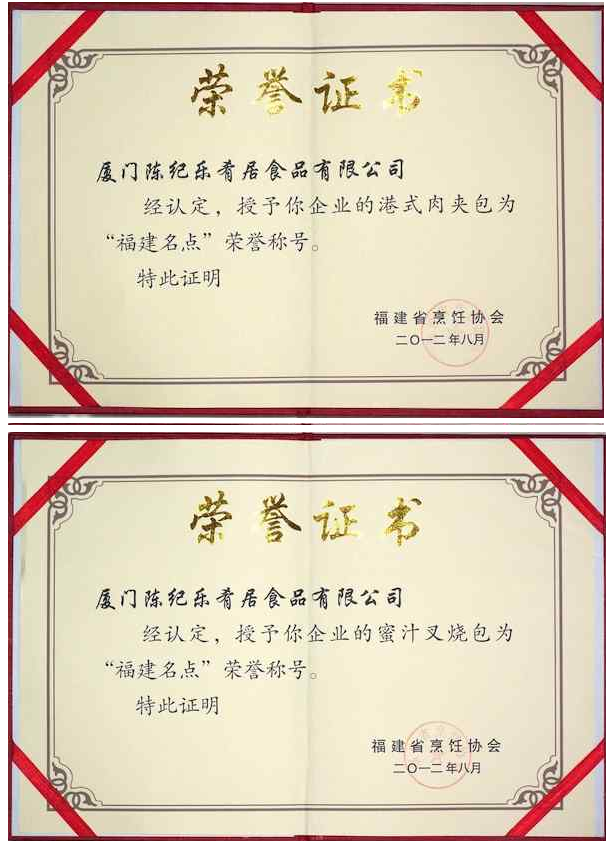 荣誉证书
厦门陈纪乐肴居食品有限公司
经认定，授予你企业的港式肉夹包为
“福建名点”荣誉称号。
特此证明
福建省烹饪协会
二〇一二年八月
荣誉证书
厦门陈纪乐肴居食品有限公司
经认定，授予你企业的蜜汁叉烧包为
“福建名点”荣誉称号。
特此证明
福建省烹饪协会
二〇一二年八月